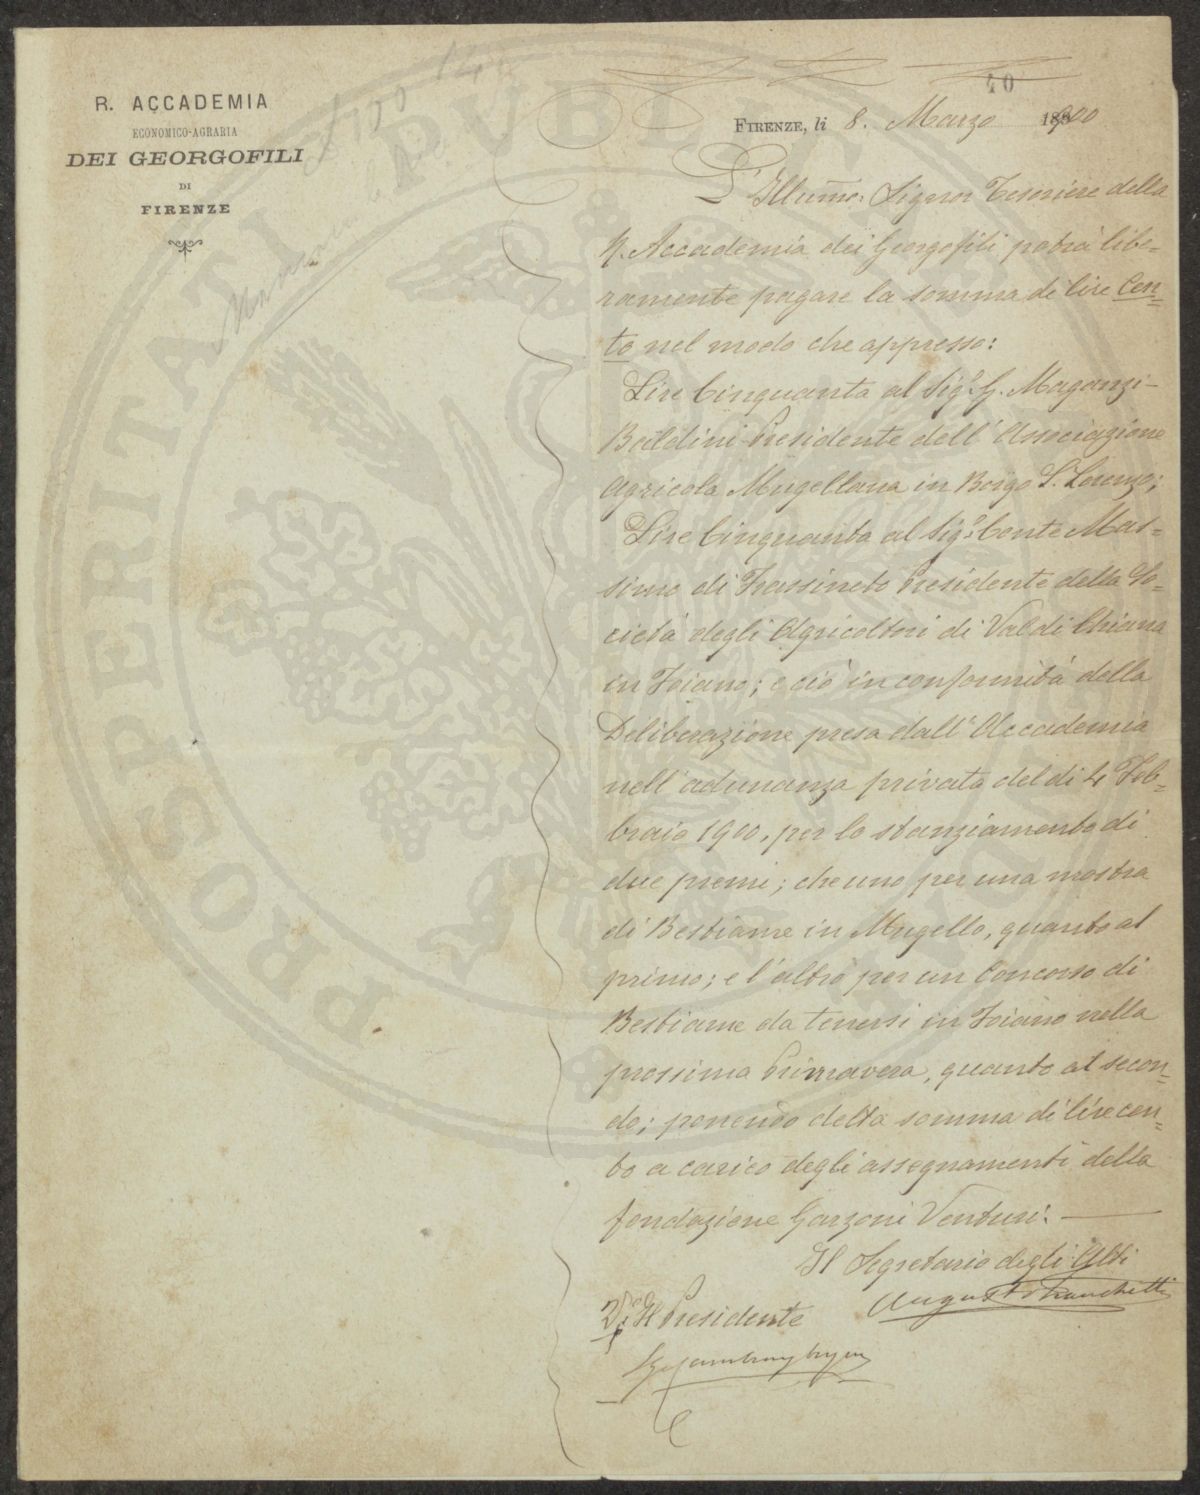 R. ACCADEMIA
ECONOMICO-AGRARIA
DEI GEORGOFILI
DI
FIRENZE
40
FIRENZE, li 8. Marzo 1900
L'Illumo: Signor Tesoriere della
R. Accademia dei Georgofili potrà libe-
ramente pagare la somma di lire Cen-
to nel modo che appresso:
Lire Cinquanta al Sigr. G. Maganzi-
Baldini Presidente dell'Associazione
Agricola Mugellana in Borgo S. Lorenzo;
Lire Cinquanta al Sigr. Conte Mas-
simo di Frassineto Presidente della So-
cietà degli Agricoltori di Val di Chiana
in Foiano; e ciò in conformità della
Deliberazione presa dall'Accademia
nell'adunanza privata del dì 4 Feb-
braio 1900, per lo stanziamento di
due premi; che uno per una mostra
di Bestiame in Mugello, quanto al
primo; e l'altro per un Concorso di
Bestiame da tenersi in Foiano nella
prossima Primavera, quanto al secon-
do; ponendo detta somma di lire cen-
to a carico degli assegnamenti della
fondazione Garzoni Venturi.
Il Segretario degli Atti
Augusto Franchetti
Vo. Il Presidente
PROSPERITATI PUBLICAE